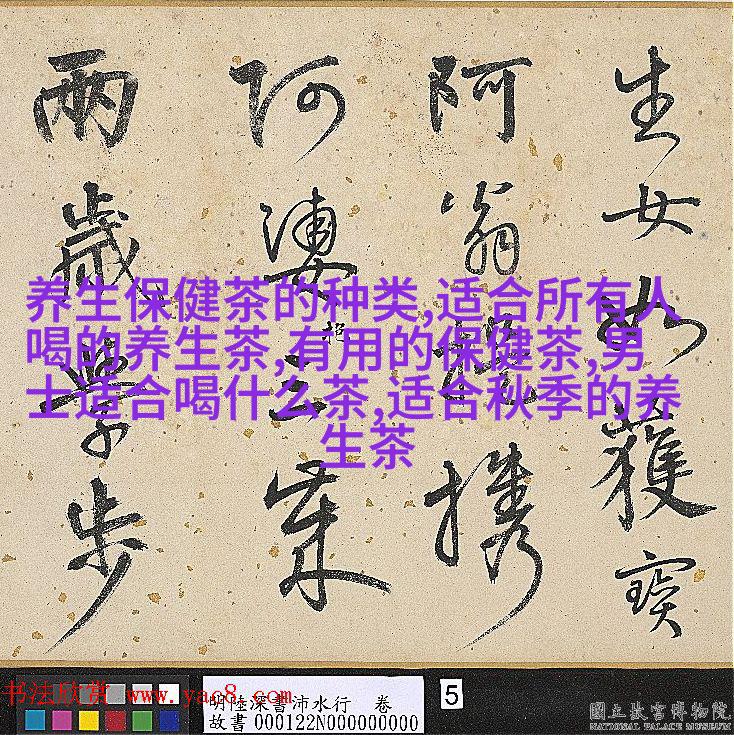 生女如獲寶
阿翁攜
阿婆抱
兩歲學步
养生保健茶的种类,适合所有人
喝的养生茶,有用的保健茶,男
士适合喝什么茶,适合秋季的养
生茶
书法欣赏 www.yac8.com
明陸深書沛水行 卷
故書 000122N000000000
5
國立故宮博物院
NATIONAL PALACE MUSEUM